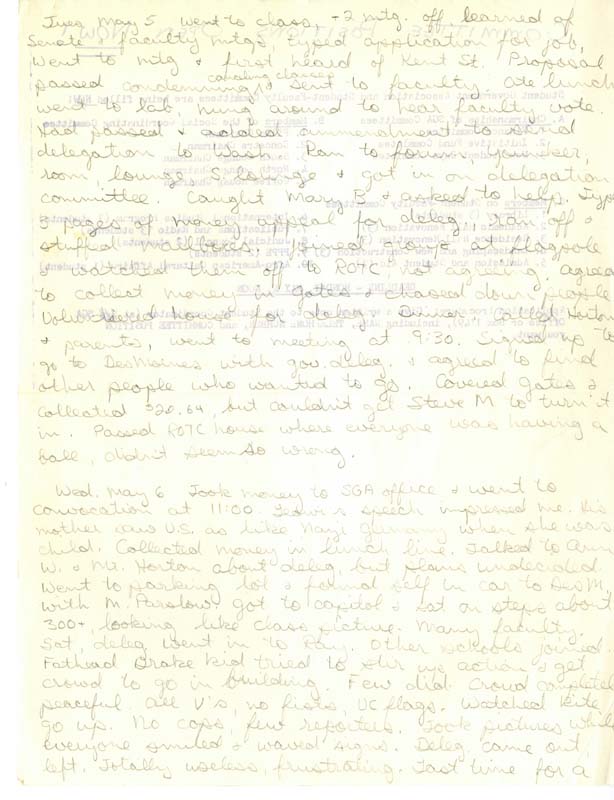 Tues. May 5 went to class, + 2 mtg. off, learned of
Senate + faculty mtgs, typed application for job,
went to mtg & first heard of Kent St. Proposal
passed condemning & canceling classes sent to faculty. Ate lunch
went to lab, hung around to hear faculty vote.
Had passed & added ammendment to send
delegation to Wash. Ran to forum younker,
room, lounge S. lounge & got in on delegation
committee. Caught Mary B & asked to help. Type
3 pages of money appeal for deleg., ran off &
stuffed mailboxes, joined group at flagpole
& watched them off to ROTC, not agreeing. agreed
to collect money in Gates & chased down people
Volunteered house for deleg. Dinner. Called Horton
& parents, went to meeting at 9:30. Signed up to
go to DesMoines with gov. deleg. & agreed to find
other people who wanted to go. Covered Gates &
collected $20.64, but couldn't get Steve M to turn it
in. Passed ROTC house where everyone was having a
ball, didn't seem so wrong.
Wed. May 6 Took money to SGA office & went to
convocation at 11:00. speech impressed me. His
mother saw U.S. as like Nazi Germany when she was
child. Collected money in lunch line. Talked to Ann
W. & Mr. Horton about deleg, but plans undecided.
Went to parking lot & found self in car to Des M,
with M. Parslow. got to capitol & sat on steps about
300+, looking like class picture. Many faculty.
Sat, deleg went in to Ray. Other schools joined.
Fathead Drake kid tried to stir up action & get
crowd to go in building. Few did. Crowd completely
peaceful. all V's, no fists, VC flags. Watched kite
go up. No cops, few reporters. Took pictures while
everyone smiled & waved signs. Deleg. came out,
left. Totally useless, frustrating. Last time for a